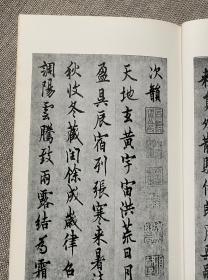 次韻
天地玄黃宇宙洪荒日月
盈昃辰宿列張寒来暑
秋收冬藏閏餘成歲律召
調陽雲騰致雨露結為霜